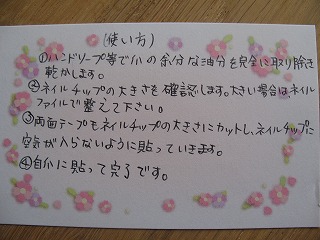 (使い方)
①ハンドソープ等で爪の余分な油分を完全に取り除き
乾かします。
②ネイルチップの大きさを確認します。大きい場合はネイル
ファイルで整えて下さい。
③両面テープをネイルチップの大きさにカットし、ネイルチップに
空気が入らないように貼っていきます。
④自爪に貼って完了です。